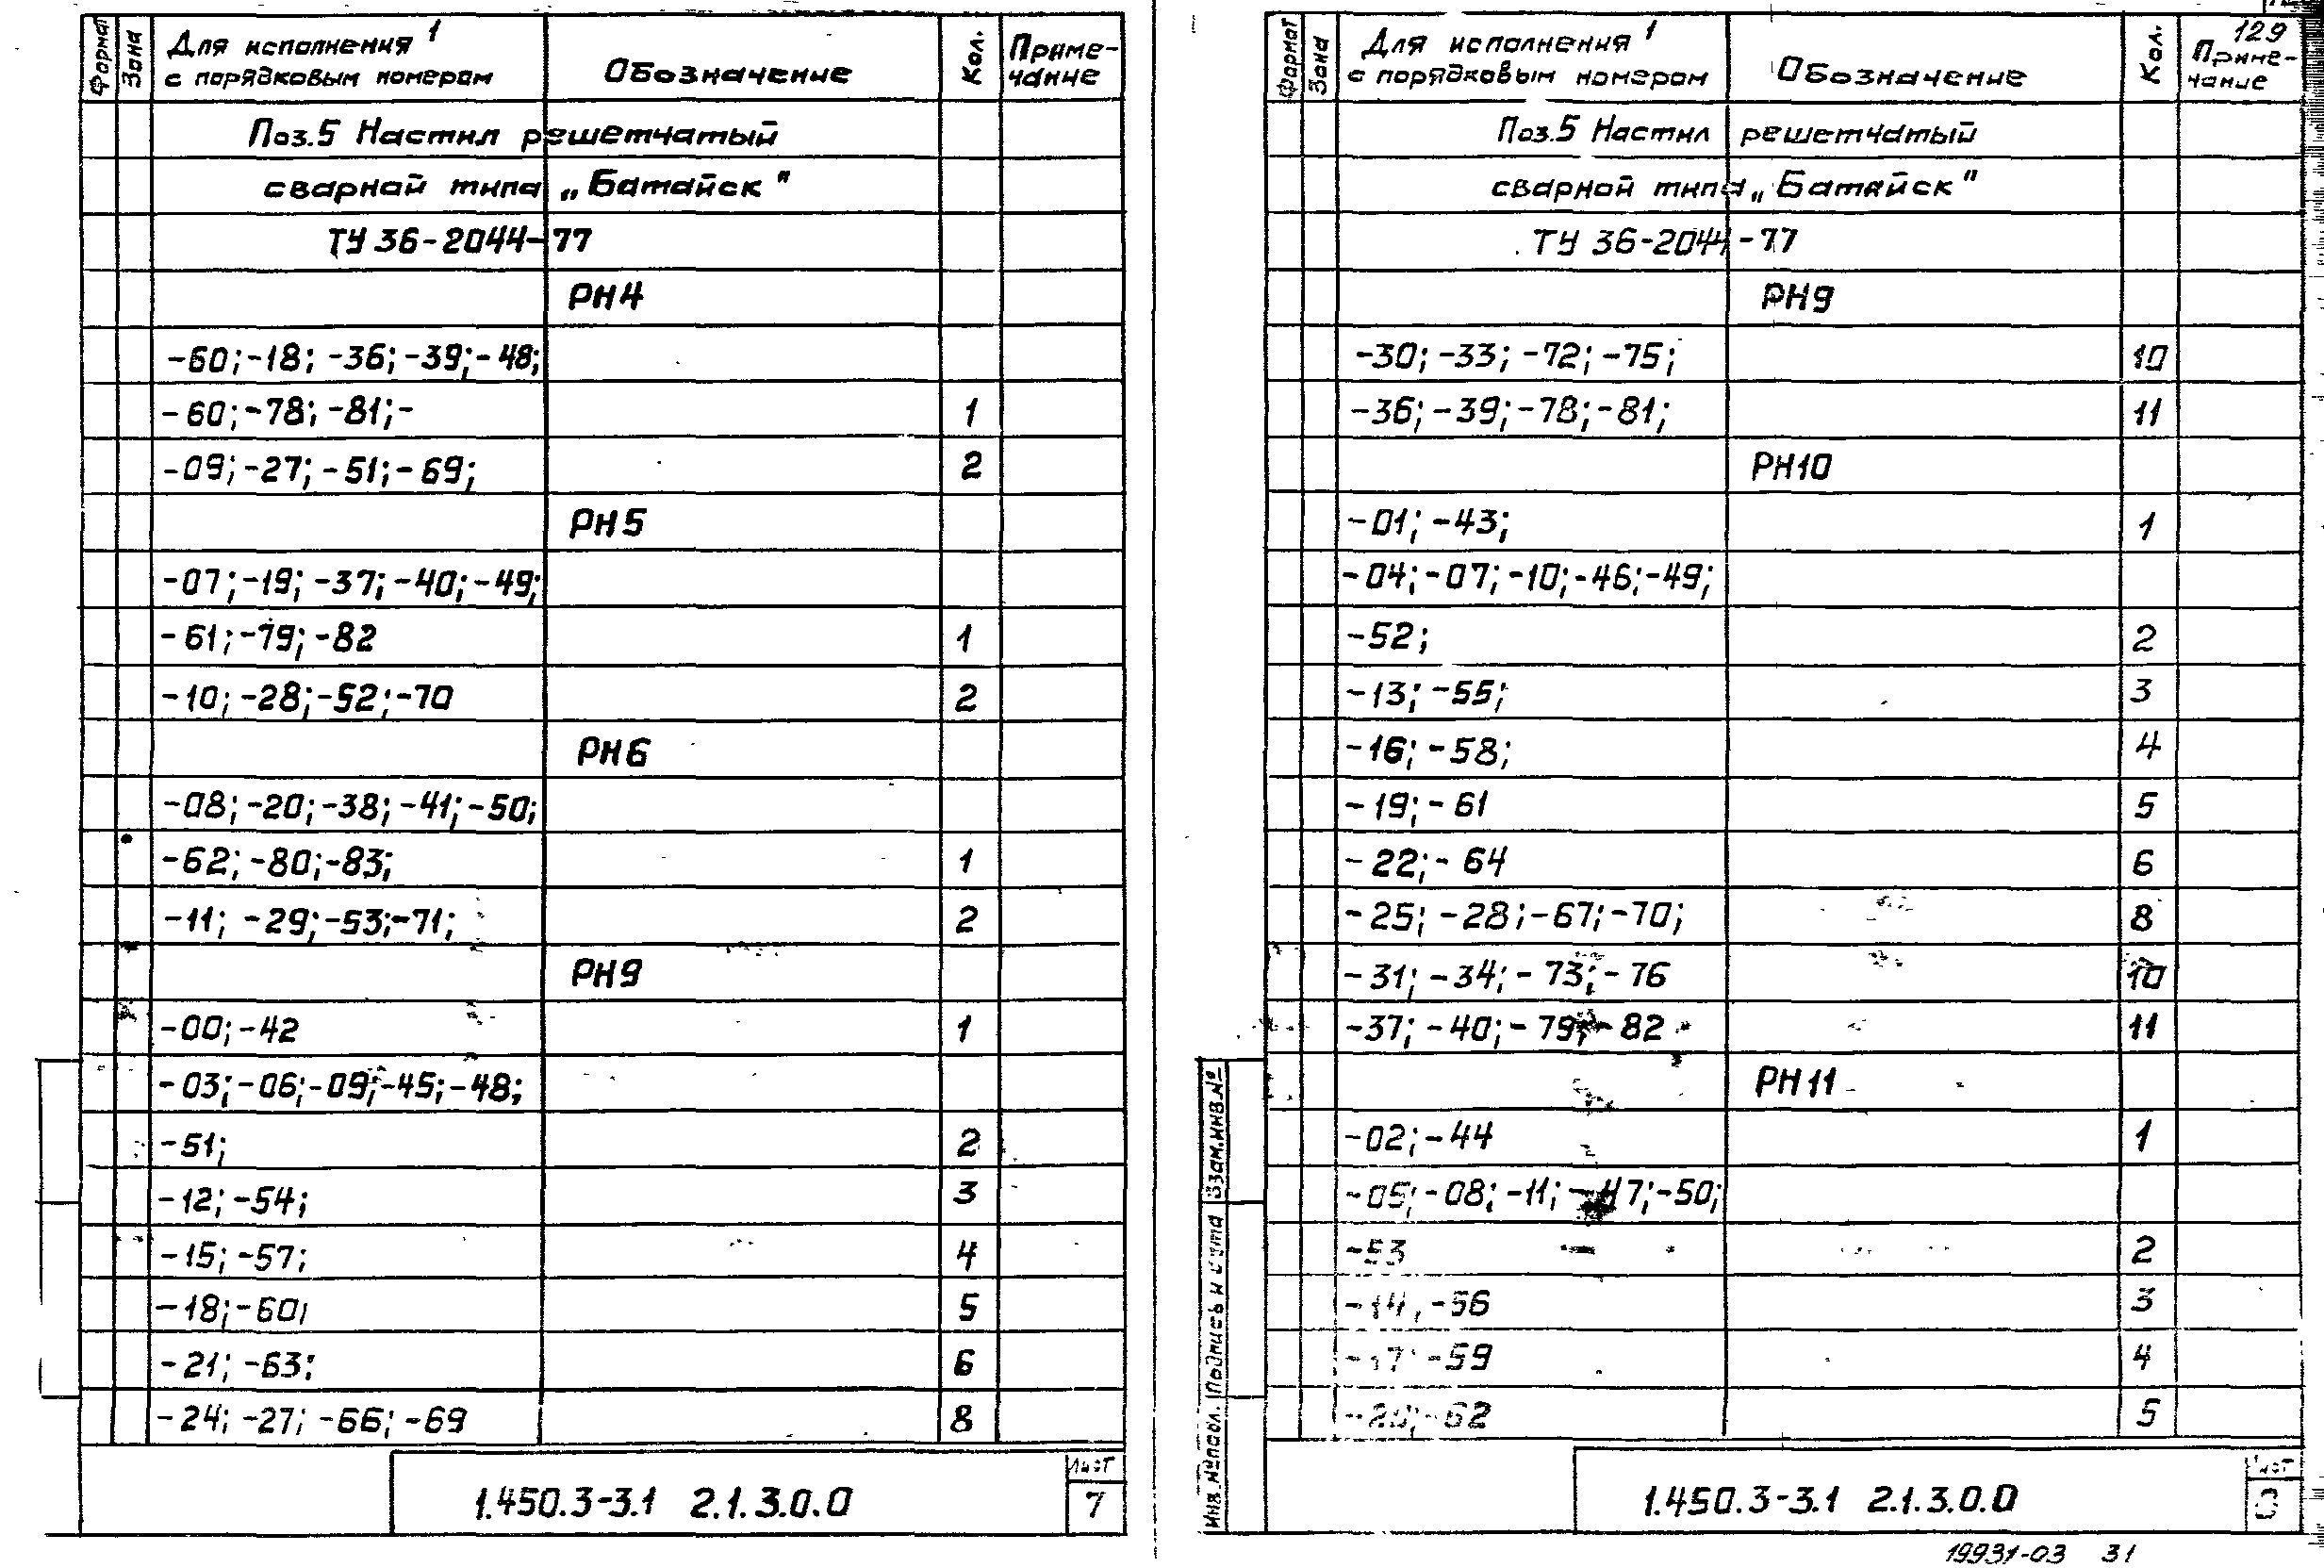 Формат
Зона
Для исполнения 1
с порядковым номером
Обозначение
Кол.
Приме-
чание
Поз.5 Настил решетчатый
сварной типа „Батайск"
ТУ 36-2044-77
РН4
-60; -18; -36; -39; -48;
-60; -78; -81; -
1
-09; -27; -51; -69;
2
РН5
-07; -19; -37; -40; -49;
-61; -79; -82
1
-10; -28; -52; -70
2
РН6
-08; -20; -38; -41; -50;
-62; -80; -83;
1
-11; -29; -53; -71;
2
РН9
-00; -42
1
-03; -06; -09; -45; -48;
-51;
2
-12; -54;
3
-15; -57;
4
-18; -60;
5
-21; -63;
6
-24; -27; -66; -69
8
1.450.3-3.1 2.1.3.0.0
Лист
7
129
Формат
Зона
Для исполнения 1
с порядковым номером
Обозначение
Кол.
Приме-
чание
Поз.5 Настил решетчатый
сварной типа „Батайск"
ТУ 36-2044-77
РН9
-30; -33; -72; -75;
10
-36; -39; -78; -81;
11
РН10
-01; -43;
1
-04; -07; -10; -46; -49;
-52;
2
-13; -55;
3
-16; -58;
4
-19; -61
5
-22; -64
6
-25; -28; -67; -70;
8
-31; -34; -73; -76
10
-37; -40; -79; -82
11
РН11
-02; -44
1
-05; -08; -11; -47; -50;
-53
2
-14, -56
3
-17; -59
4
-20; -62
5
Инв.№подл.
Подпись и дата
Взам.инв.№
1.450.3-3.1 2.1.3.0.0
Лист
8
19931-03 31